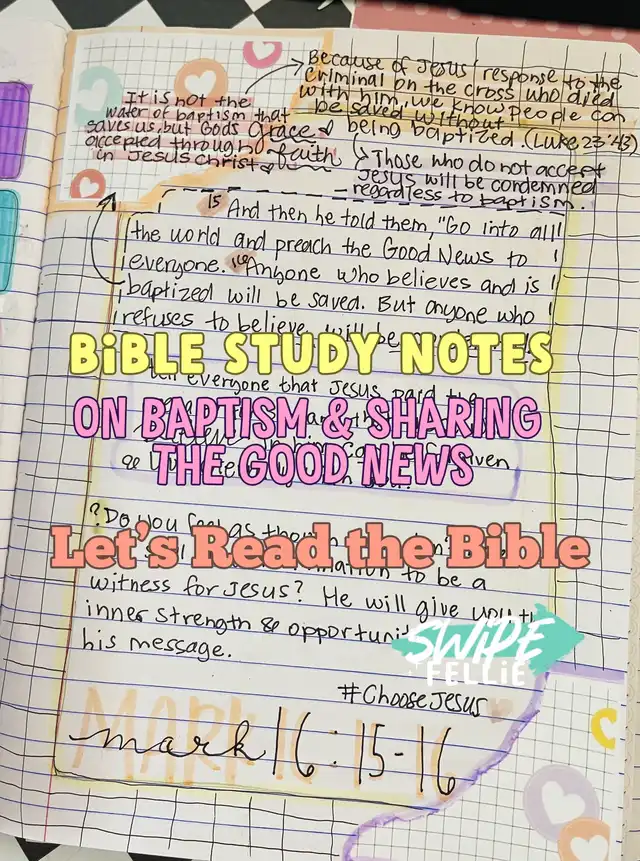 It is not the
water of baptism that
saves us, but Gods Grace
accepted through faith
in Jesus Christ
Because of Jesus' response to the
criminal on the cross who died
with him, we know people can
be saved without
being baptized. (Luke 23:43)
Those who do not accept
Jesus will be condemned
regardless to baptism.
15 And then he told them, "Go into all
the world and preach the Good News to
everyone. 16 Anyone who believes and is
baptized will be saved. But anyone who
refuses to believe will be
BiBLE STUDY NOTES
everyone that Jesus paid the
ON BAPTISM & SHARING
THE GOOD NEWS
? Do you feel as
Let's Read the Bible
to be a
witness for Jesus? He will give you
inner strength & opportuni
his message.
SWIPE
FELLiE
#ChooseJesus
MARK 16:15-16
mark 16:15-16